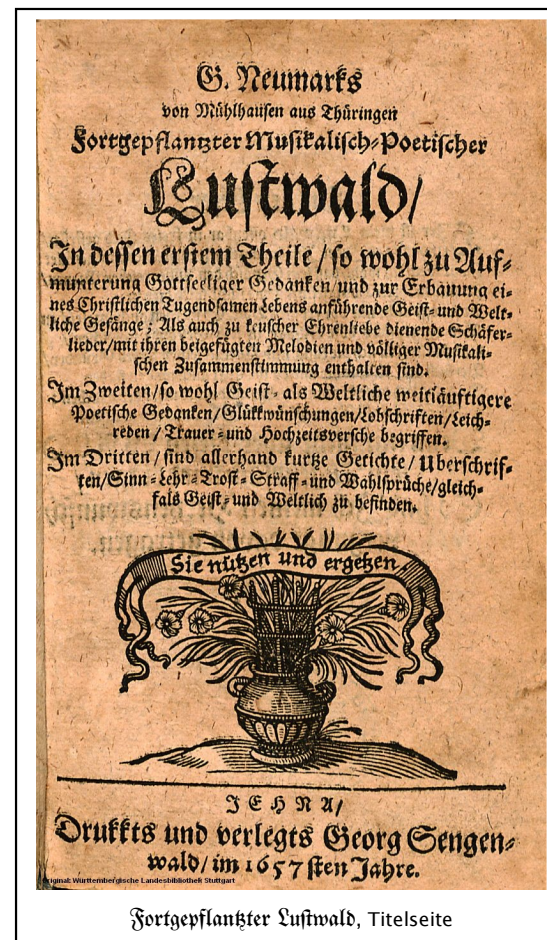 G. Neumarks
von Mühlhausen aus Thüringen
Fortgepflantzter Musikalisch-Poetischer
Lustwald/
In dessen erstem Theile / so wohl zu Auf-
munterung Gottseeliger Gedanken / und zur Erbauung ei-
nes Christlichen Tugendsamen Lebens anführende Geist- und Welt-
liche Gesänge; Als auch zu keuscher Ehrenliebe dienende Schäfer-
lieder/mit ihren beigefügten Melodien und völliger Musikali-
schen Zusammenstimmung enthalten sind.
Im Zweiten/so wohl Geist- als Weltliche weitläuftigere
Poetische Gedanken/Glükkwünschungen/Lobschriften/Leich-
reden / Trauer- und Hochzeitsversche begriffen.
Im Dritten / sind allerhand kurtze Getichte / Uberschrif-
ten/Sinn- Lehr- Trost- Straff- und Wahlsprüche/gleich-
fals Geist- und Weltlich zu befinden.
Sie nützen und ergetzen
JEHNA/
Drukkts und verlegts Georg Sengen-
wald/ im 1657sten Jahre.
Original: Württembergische Landesbibliothek Stuttgart
Fortgepflantzter Lustwald, Titelseite